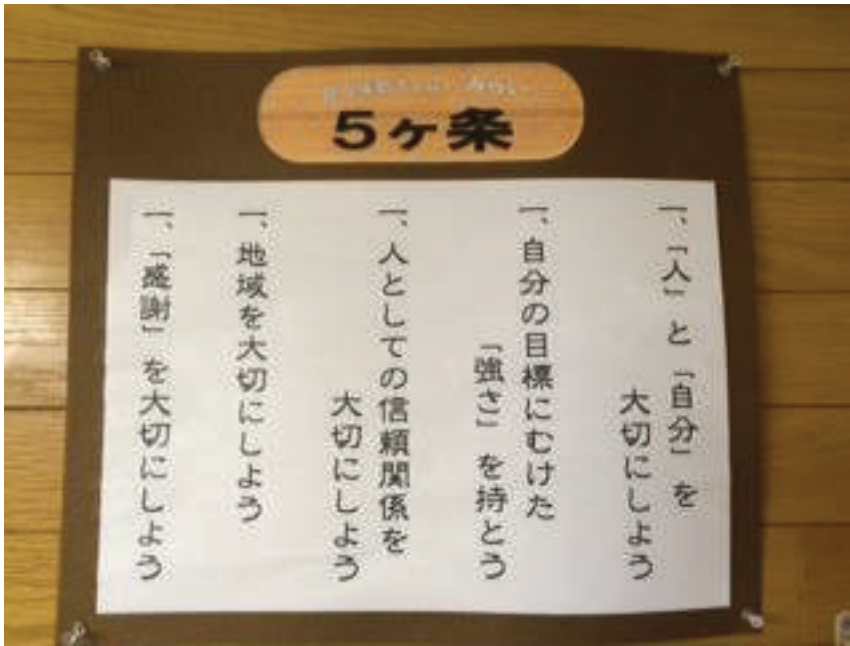 5ヶ条
一、「人」と「自分」を
大切にしよう
一、自分の目標にむけた
「強さ」を持とう
一、人としての信頼関係を
大切にしよう
一、地域を大切にしよう
一、「感謝」を大切にしよう